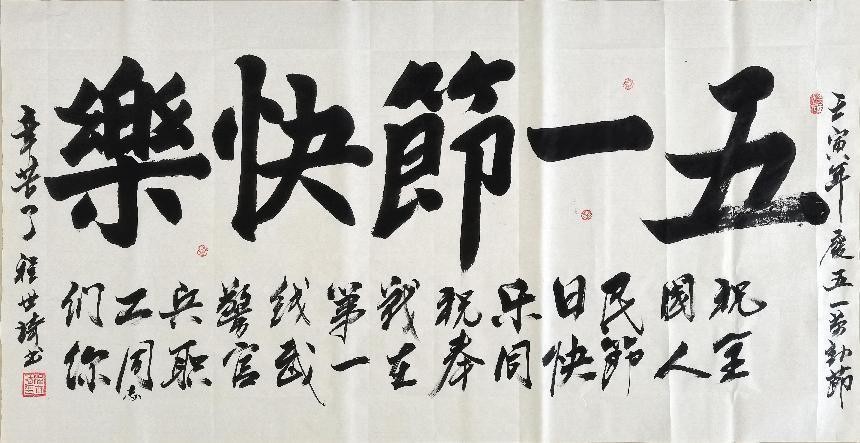 壬寅年慶五一劳动節
五一節快樂
祝全
國人
民節
日快
乐同
祝奉
战在
第一
线武
警官
兵职
工同志
们你
辛苦了 程世琦书